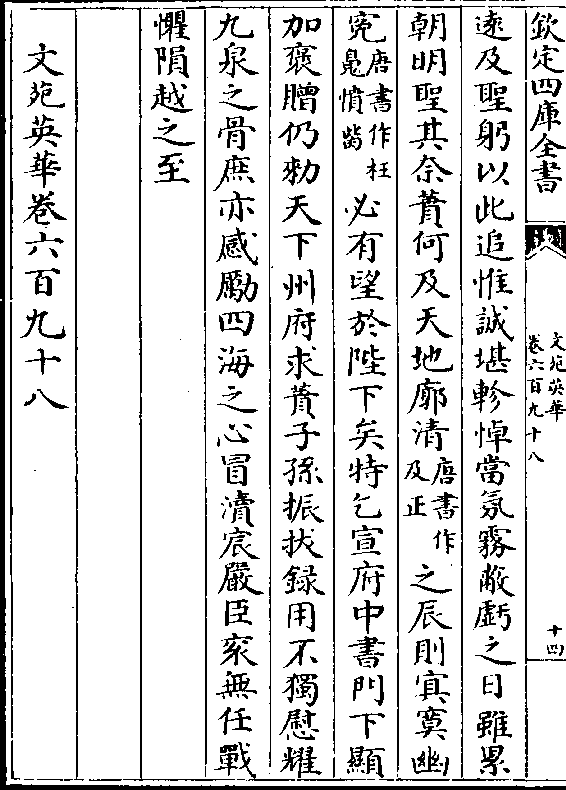 欽定四庫全書
文苑英華
卷六百九十八
十四
逺及聖躬以此追惟誠堪軫悼當氛霧敝虧之日雖累
朝明聖其奈蕢何及天地廓清唐書作及正之辰則寘寞幽
寃唐書作枉鬼憤齒必有望於陛下矣特乞宣府中書門下顯
加褒贈仍勑天下州府求蕢子孫振拔録用不獨慰耀
九泉之骨庶亦感勵四海之心冒瀆宸嚴臣衮無任戰
懼隕越之至
文苑英華卷六百九十八